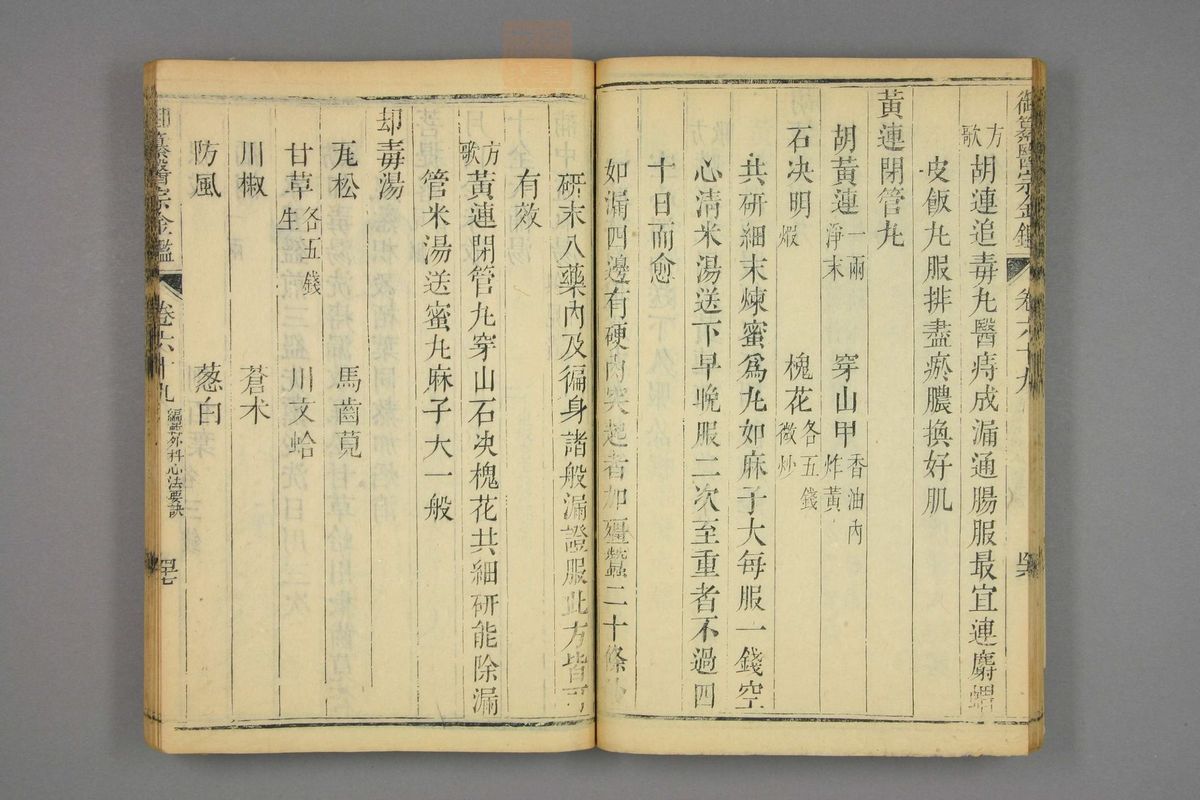 御纂醫宗金鑑 卷六十九
方歌 胡連追毒丸醫痔成漏通腸服最宜連麝蝟
皮飯丸服排盡瘀膿換好肌
黃連閉管丸
胡黃連一兩淨末 穿山甲香油內炸黃
石决明煅 槐花各五錢微炒
共研細末煉蜜爲丸如麻子大每服一錢空
心清米湯送下早晚服二次至重者不過四
十日而愈
如漏四邊有硬肉突起者加殭蠶二十條
研末入藥內及徧身諸般漏證服此方皆
有效
方歌 黃連閉管丸穿山石决槐花共細研能除漏
管米湯送蜜丸麻子大一般
却毒湯
瓦松 馬齒莧
甘草各五錢生 川文蛤
川椒 蒼术
防風 葱白
御纂醫宗金鑑 卷六十九 編輯外科心法要訣